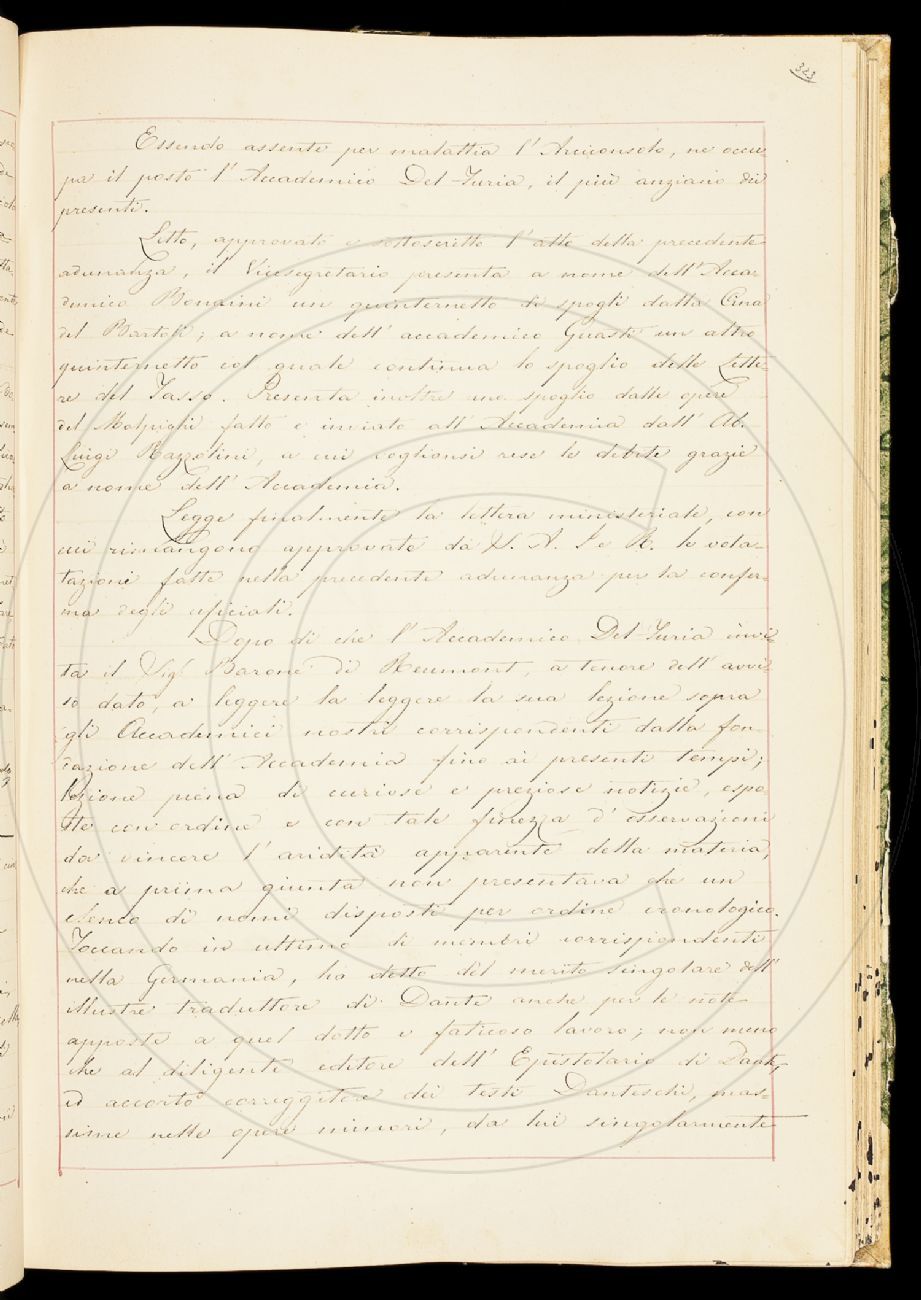 323
Essendo assente per malattia l'Arciconsolo, ne occu-
pa il posto l'Accademico Del-Furia, il più anziano dei
presenti.
Letto, approvato e sottoscritto l'atto della precedente
adunanza, il Vicesegretario presenta a nome dell'Acca-
demico Bonaini un quinternetto di spogli dalla Cina
del Bartoli; a nome dell'accademico Guasti un altro
quinternetto col quale continua lo spoglio delle Lette-
re del Tasso. Presenta inoltre uno spoglio dalle opere
del Malpighi fatto e inviato all'Accademia dall'Ab.
Luigi Razzolini, a cui voglionsi rese le debite grazie
a nome dell'Accademia.
Legge finalmente la lettera ministeriale, con
cui rimangono approvate da S. A. I. e R. le vota-
tazioni fatte nella precedente adunanza per la confer-
ma degli uficiali.
Dopo di che l'Accademico Del-Furia invi-
ta il Sig.r Barone di Reumont, a tenore dell'avvi-
so dato, a leggere la leggere la sua lezione sopra
gli Accademici nostri corrispondenti dalla fon-
dazione dell'Accademia fino ai presenti tempi;
lezione piena di curiose e preziose notizie, espo-
ste con ordine e con tale finezza d'osservazioni
da vincere l'aridità apparente della materia,
che a prima giunta non presentava che un
elenco di nomi disposti per ordine cronologico.
Toccando in ultimo di membri corrispondenti
nella Germania, ha detto del merito singolare dell'
illustre traduttore di Dante anche per le note
apposte a quel dotto e faticoso lavoro; non meno
che al diligente editore dell'Epistolario di Dante,
ed accorto correggitore dei testi Danteschi, mas-
sime nelle opere minori, da lui singolarmente